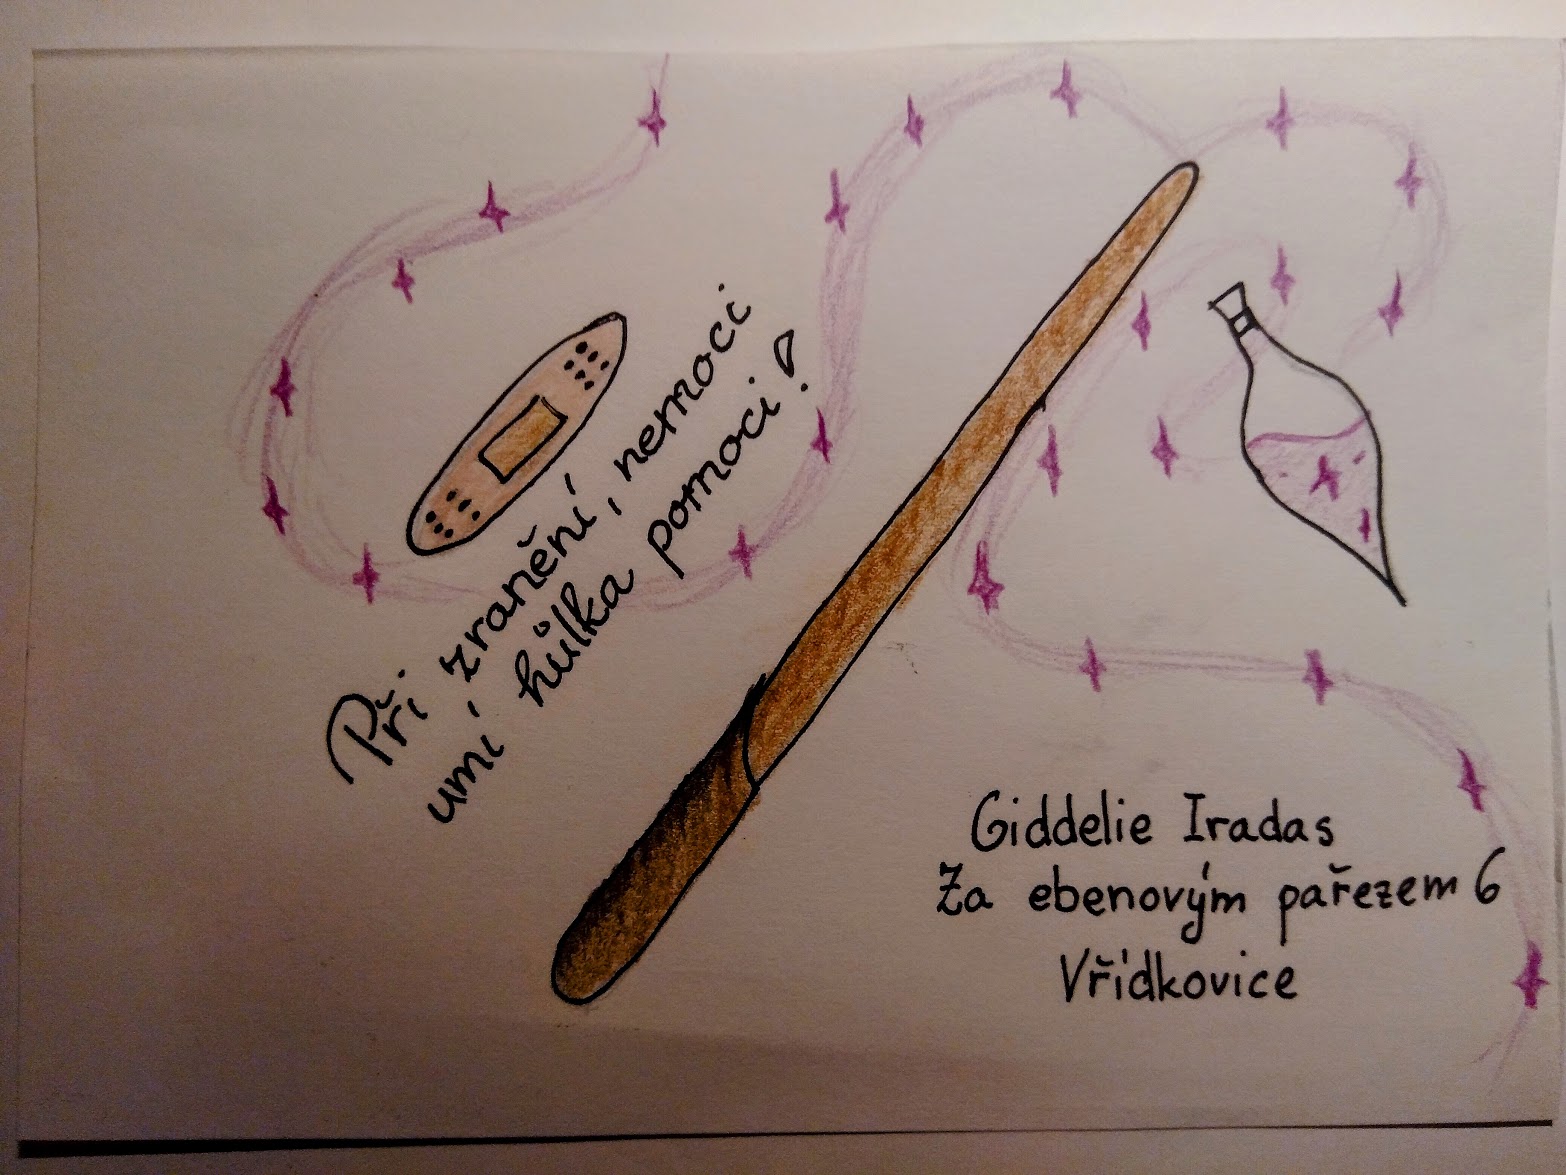 Při zranění, nemoci
umí hůlka pomoci!
Giddelie Iradas
Za ebenovým pařezem 6
Vřídkovice